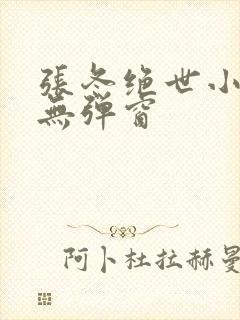 張冬绝世小
無弹窗
阿卜杜拉赫曼